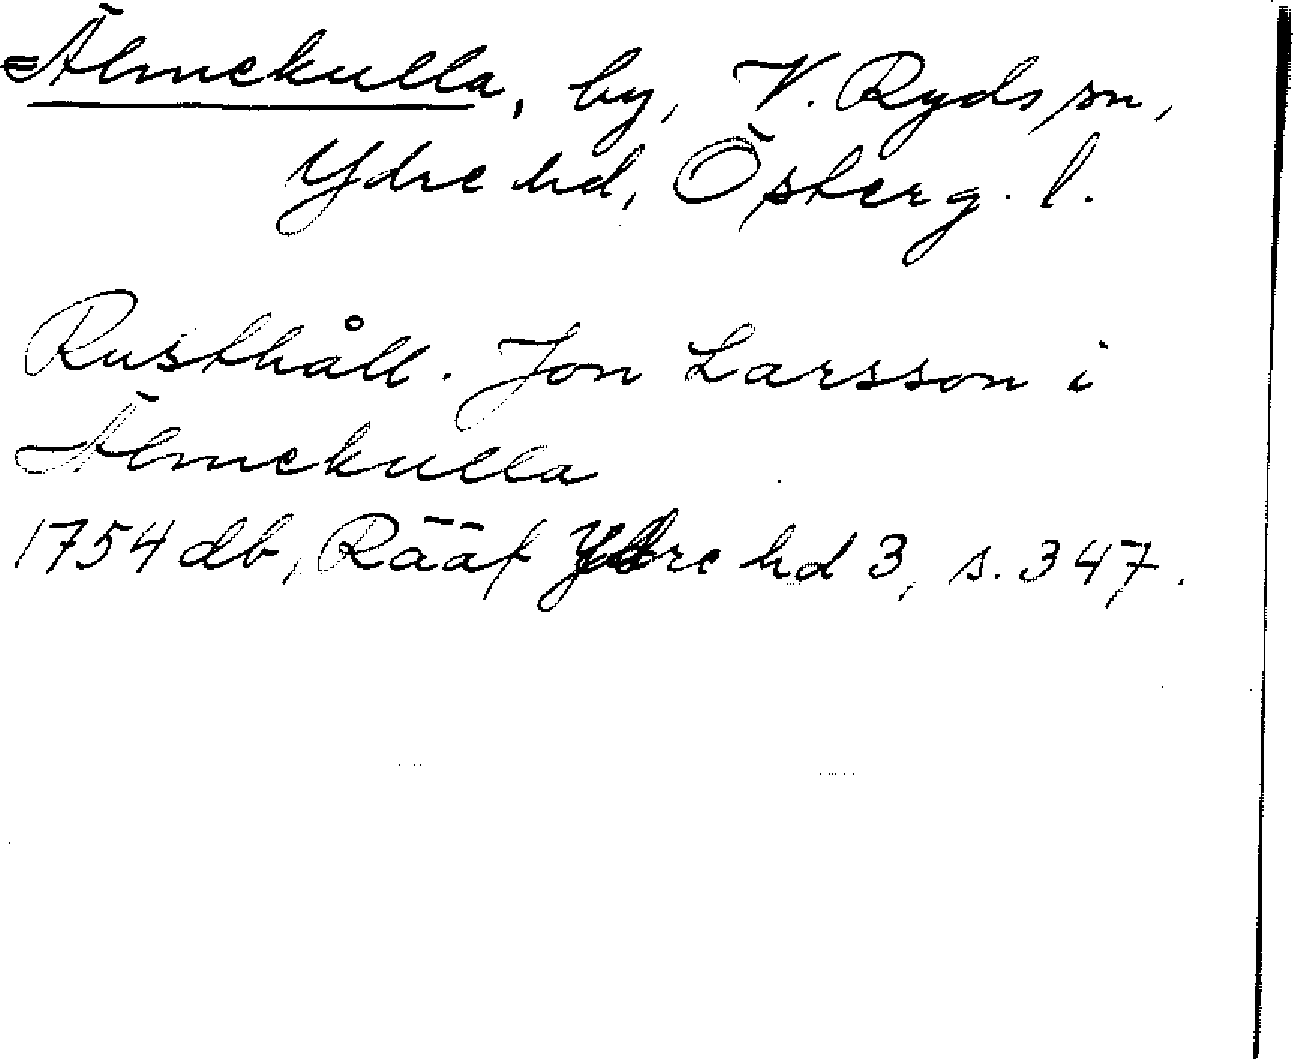 Älmekulla, by, V. Ryds sn,
Ydre hd, Österg. l.
Rusthåll. Jon Larsson i
Älmekulla
1754 db, Rääf Ydre hd 3, s. 347.